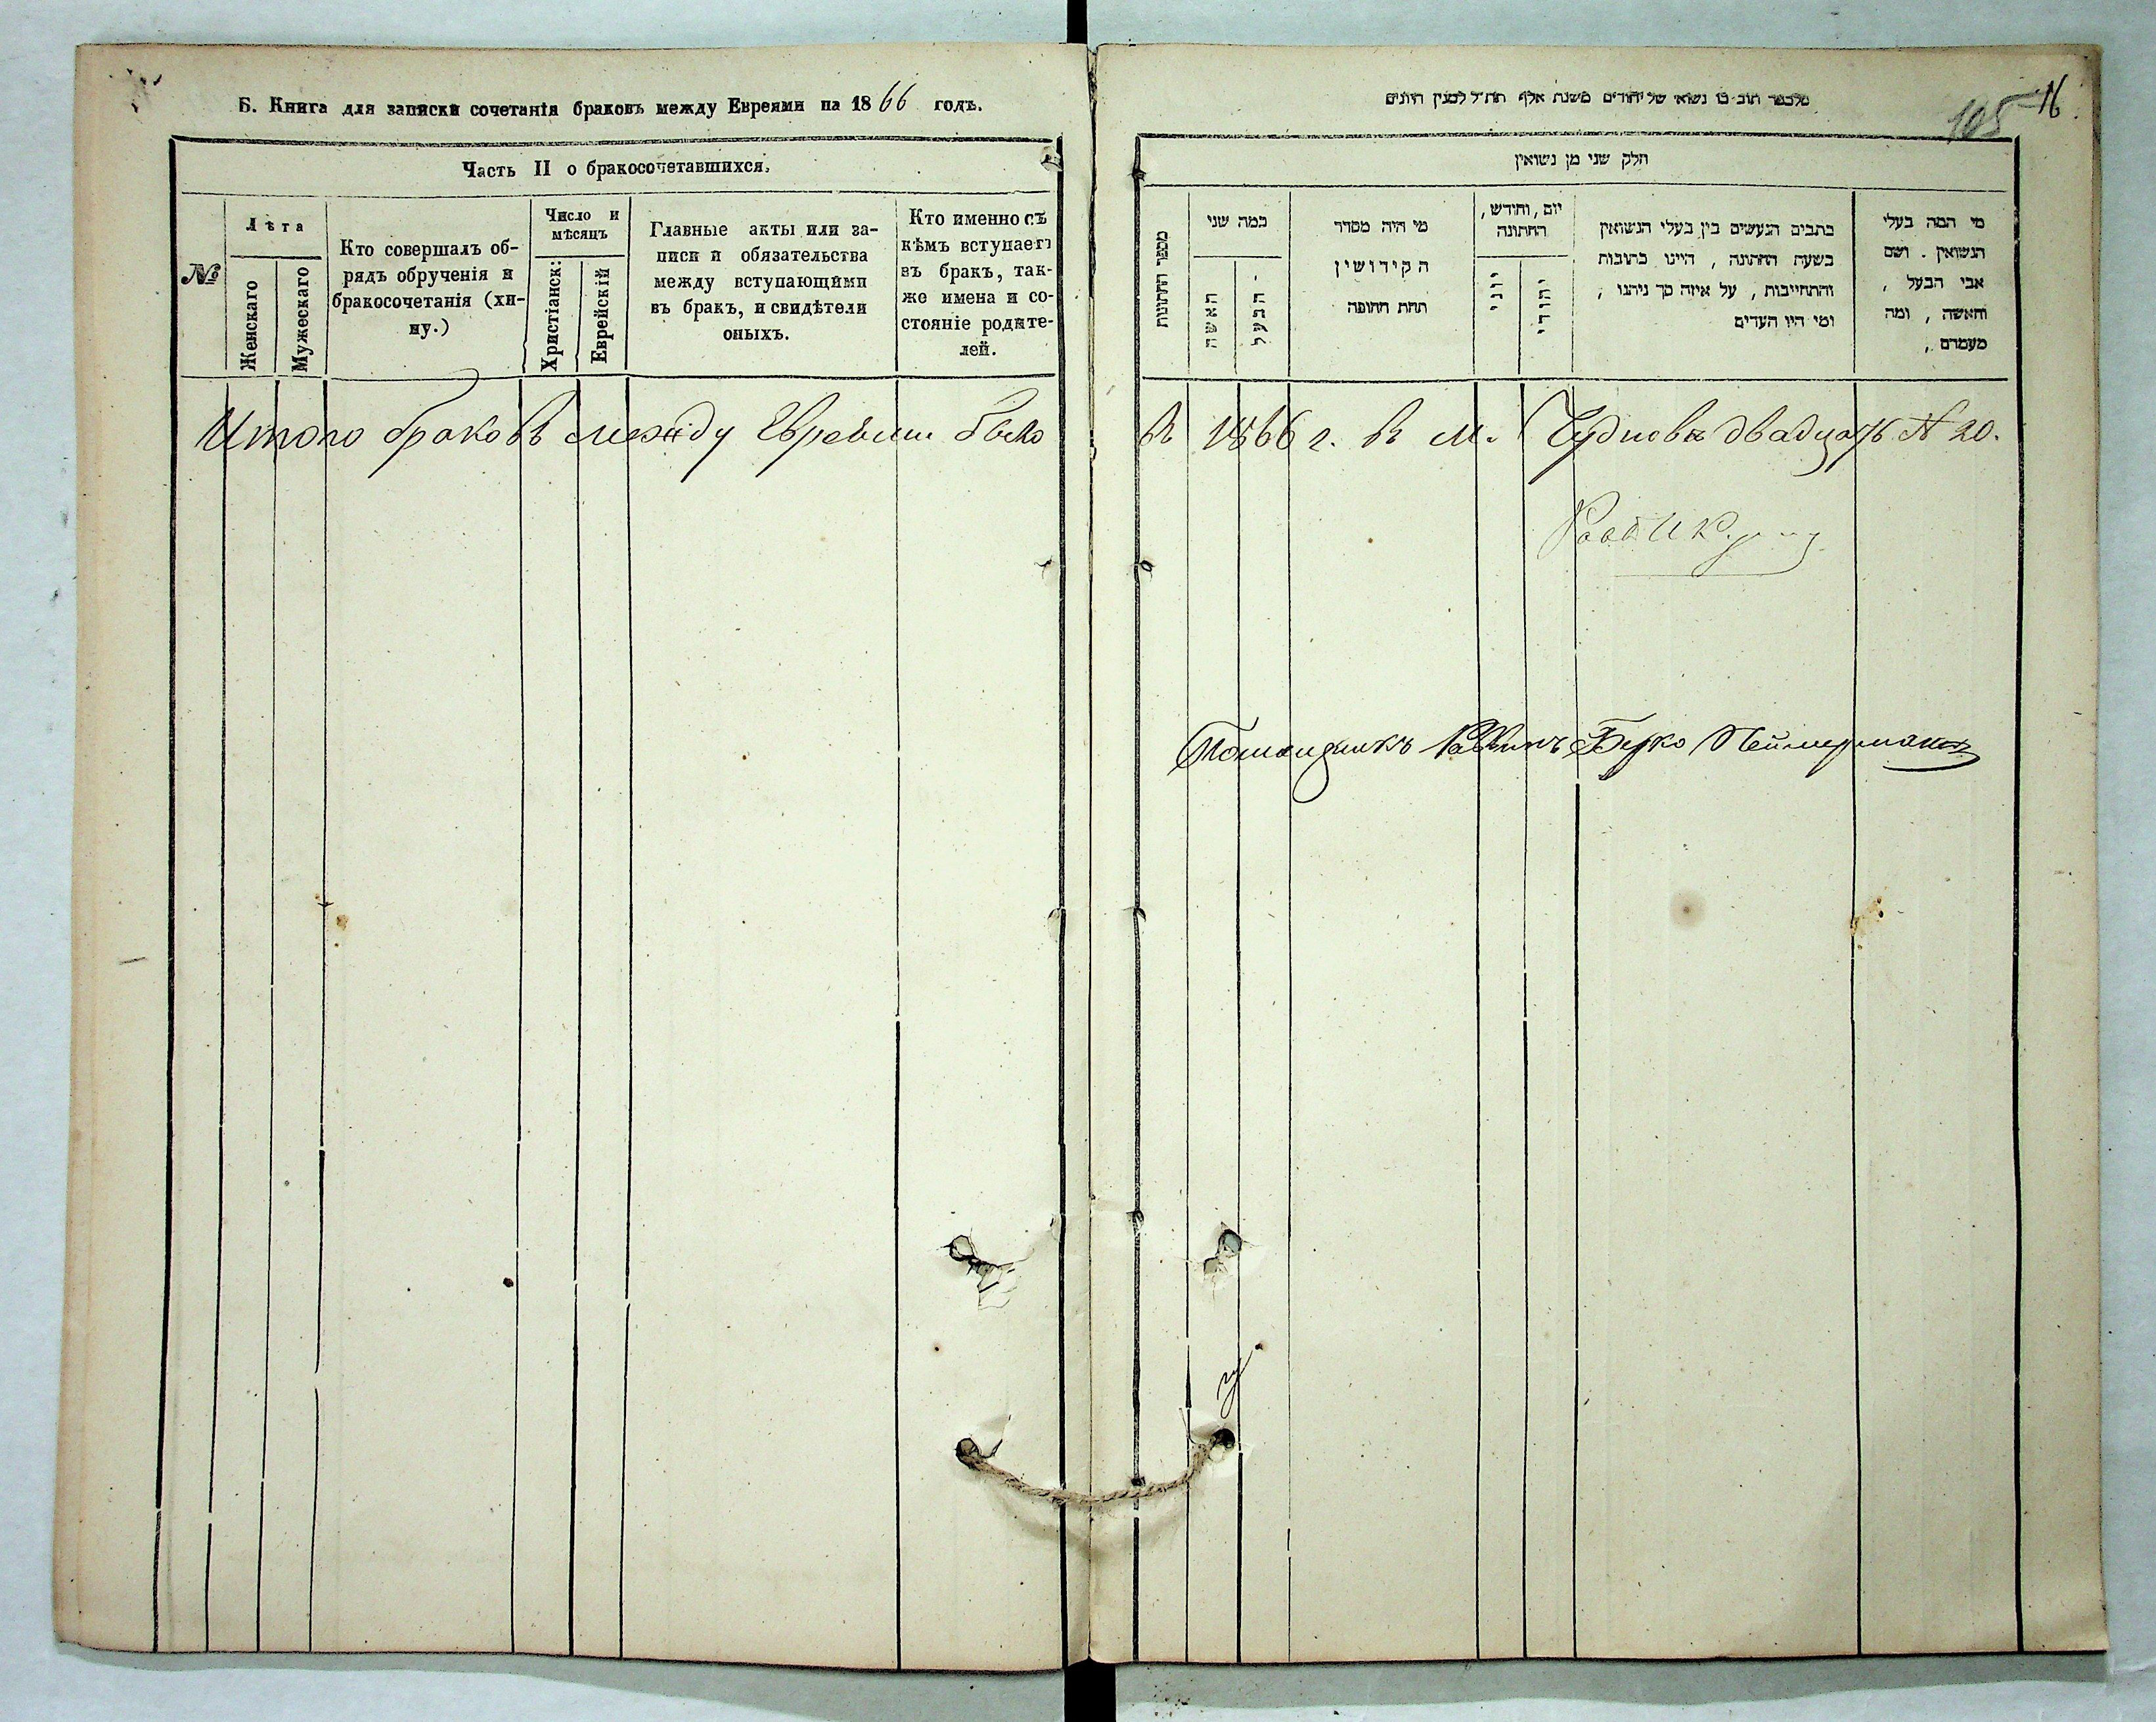 Б. Книга для записки сочетанія браковъ между Евреями на 1866 годъ.
Часть II о бракосочетавшихся.
№
Лѣта
Женскаго
Мужескаго
Кто совершалъ об-
рядъ обрученія и
бракосочетанія (хи-
ну.)
Число и
мѣсяцъ
Христіанск:
Еврейскій
Главные акты или за-
писи и обязательства
между вступающими
въ бракъ, и свидѣтели
оныхъ.
Кто именно съ
кѣмъ вступаетъ
въ бракъ, так-
же имена и со-
стояніе родите-
лей.
Итого браковъ между Евреями было
נשואי של יהודים משנת אלף תת"ל למנין היונים
105 16.
חלק שני מן נשואין
מספר החתונות
כמה שני
האשה
הבעל
מי היה מסדר
הקידושין
תחת החופה
יום, וחודש,
החתונה
יוני
יהודי
כתבים הנעשים בין בעלי הנשואין
בשעת החתונה, היינו כתובות
והתחייבות, על איזה סך ניתנו,
ומי היו העדים
מי המה בעלי
הנשואין. ושם
אבי הבעל,
והאשה, ומה
מעמדם,
В 1866 г. в м. Чудновѣ двадцать № 20.
Помощникъ Раввинъ Берко